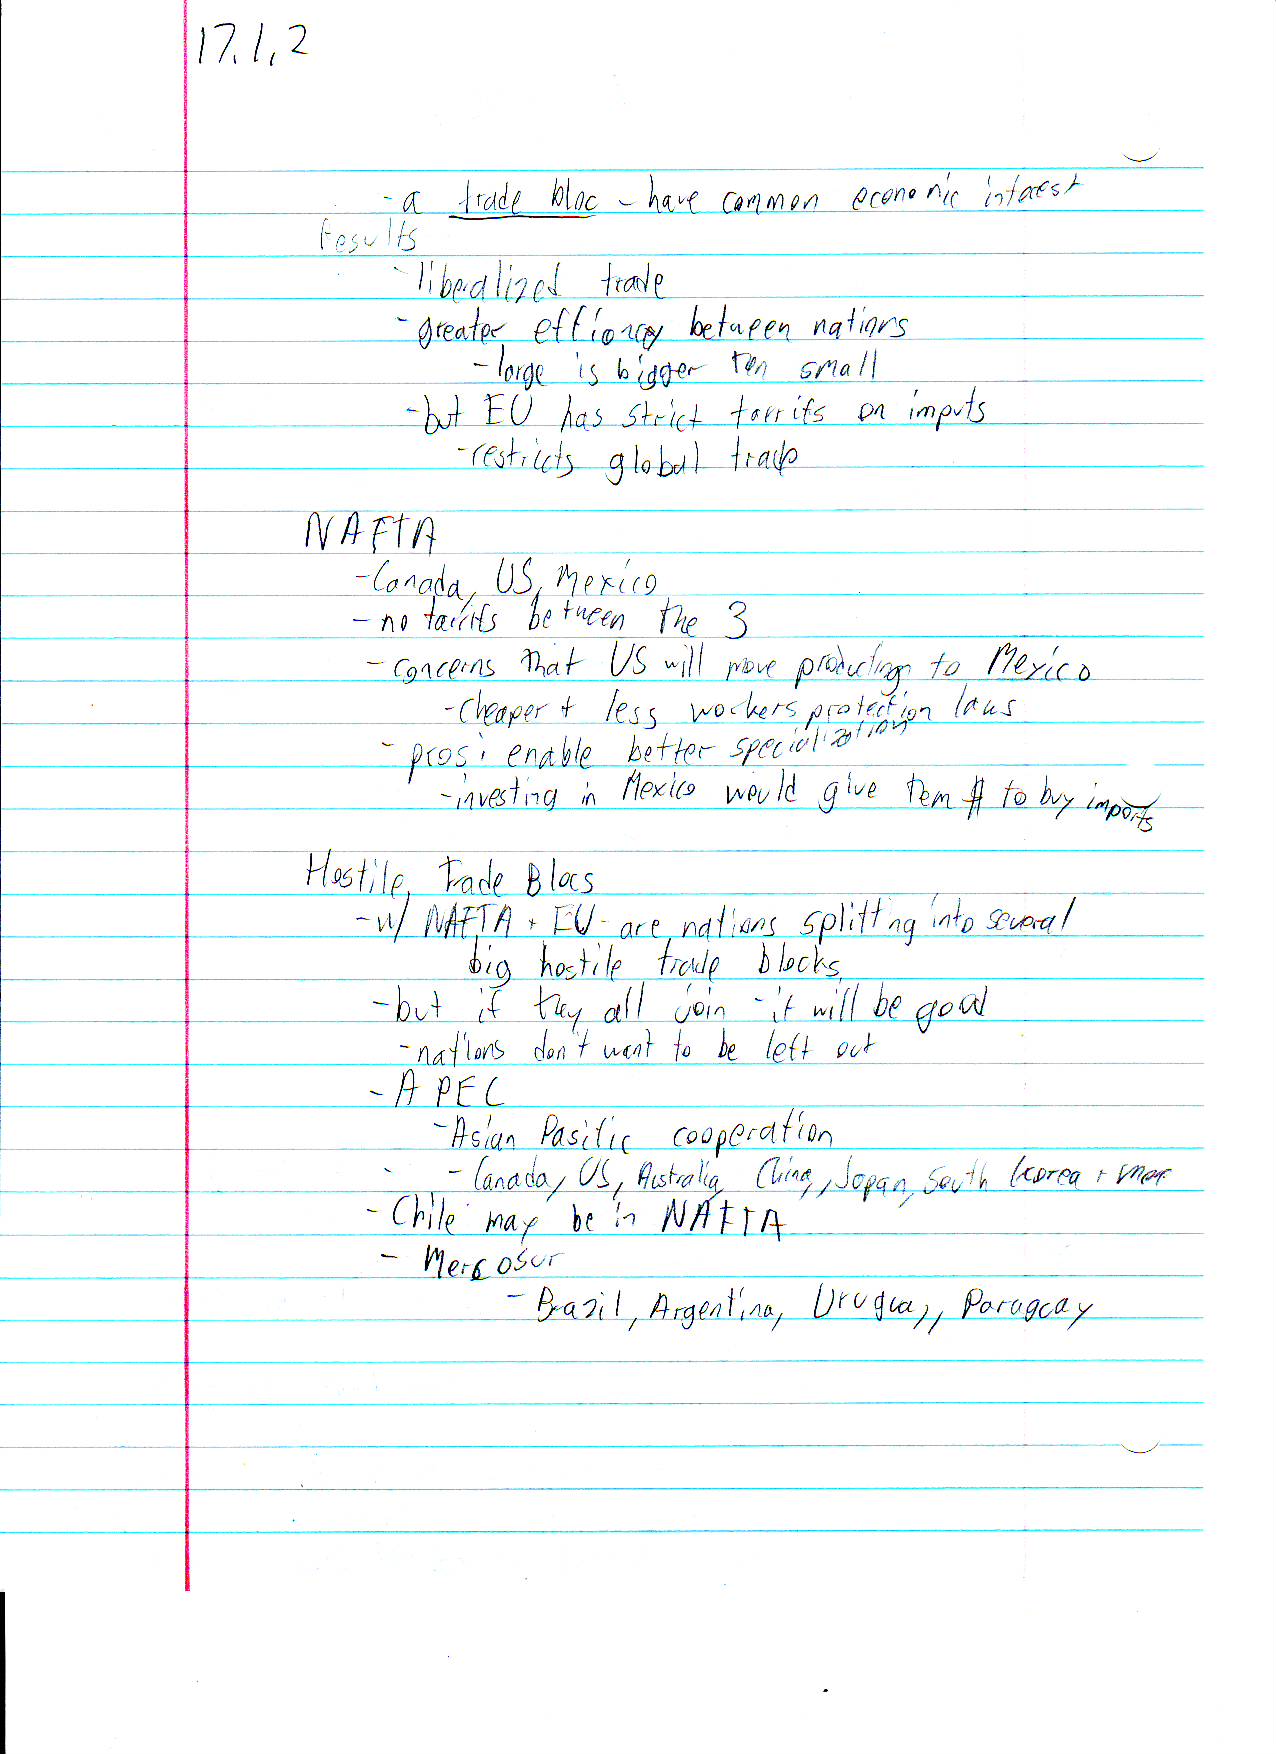 17.1,2
- a trade bloc - have common economic interest
results
- liberalized trade
- greater efficiency between nations
- large is bigger ten small
- but EU has strict tarrifs on imputs
- restricts global trade
NAFTA
- Canada, US, Mexico
- no tarrifs between the 3
- concerns that US will move production to Mexico
- cheaper + less workers protection laws
- pros: enable better specialization
- investing in Mexico would give tem $ to buy imports
Hostile Trade Blocs
- w/ NAFTA + EU - are nations splitting into several
big hostile trade blocks
- but if they all join - it will be good
- nations don't want to be left out
- APEC
- Asian Pasific cooperation
- Canada, US, Australia, China, Japan, South Korea + mor
- Chile may be in NAFTA
- Mercosur
- Brazil, Argentina, Uruguay, Paraguay